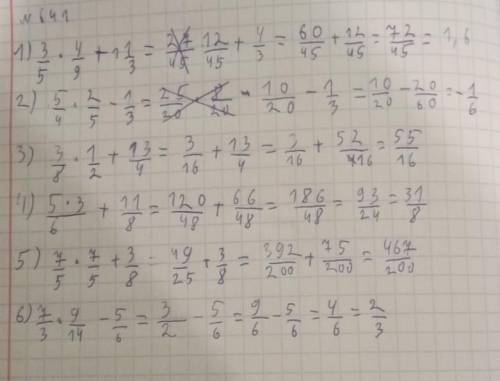 № 641
1) 3/5 · 4/9 + 1 1/3 = 12/45 + 4/3 = 60/45 + 12/45 = 72/45 = 1,6
2) 5/4 · 2/5 - 1/3 = 10/20 - 1/3 = 10/20 - 20/60 = - 1/6
3) 3/8 · 1/2 + 13/4 = 3/16 + 13/4 = 3/16 + 52/16 = 55/16
4) 5·3/6 + 11/8 = 120/48 + 66/48 = 186/48 = 93/24 = 31/8
5) 7/5 · 7/5 + 3/8 = 49/25 + 3/8 = 392/200 + 75/200 = 467/200
6) 7/3 · 9/14 - 5/6 = 3/2 - 5/6 = 9/6 - 5/6 = 4/6 = 2/3